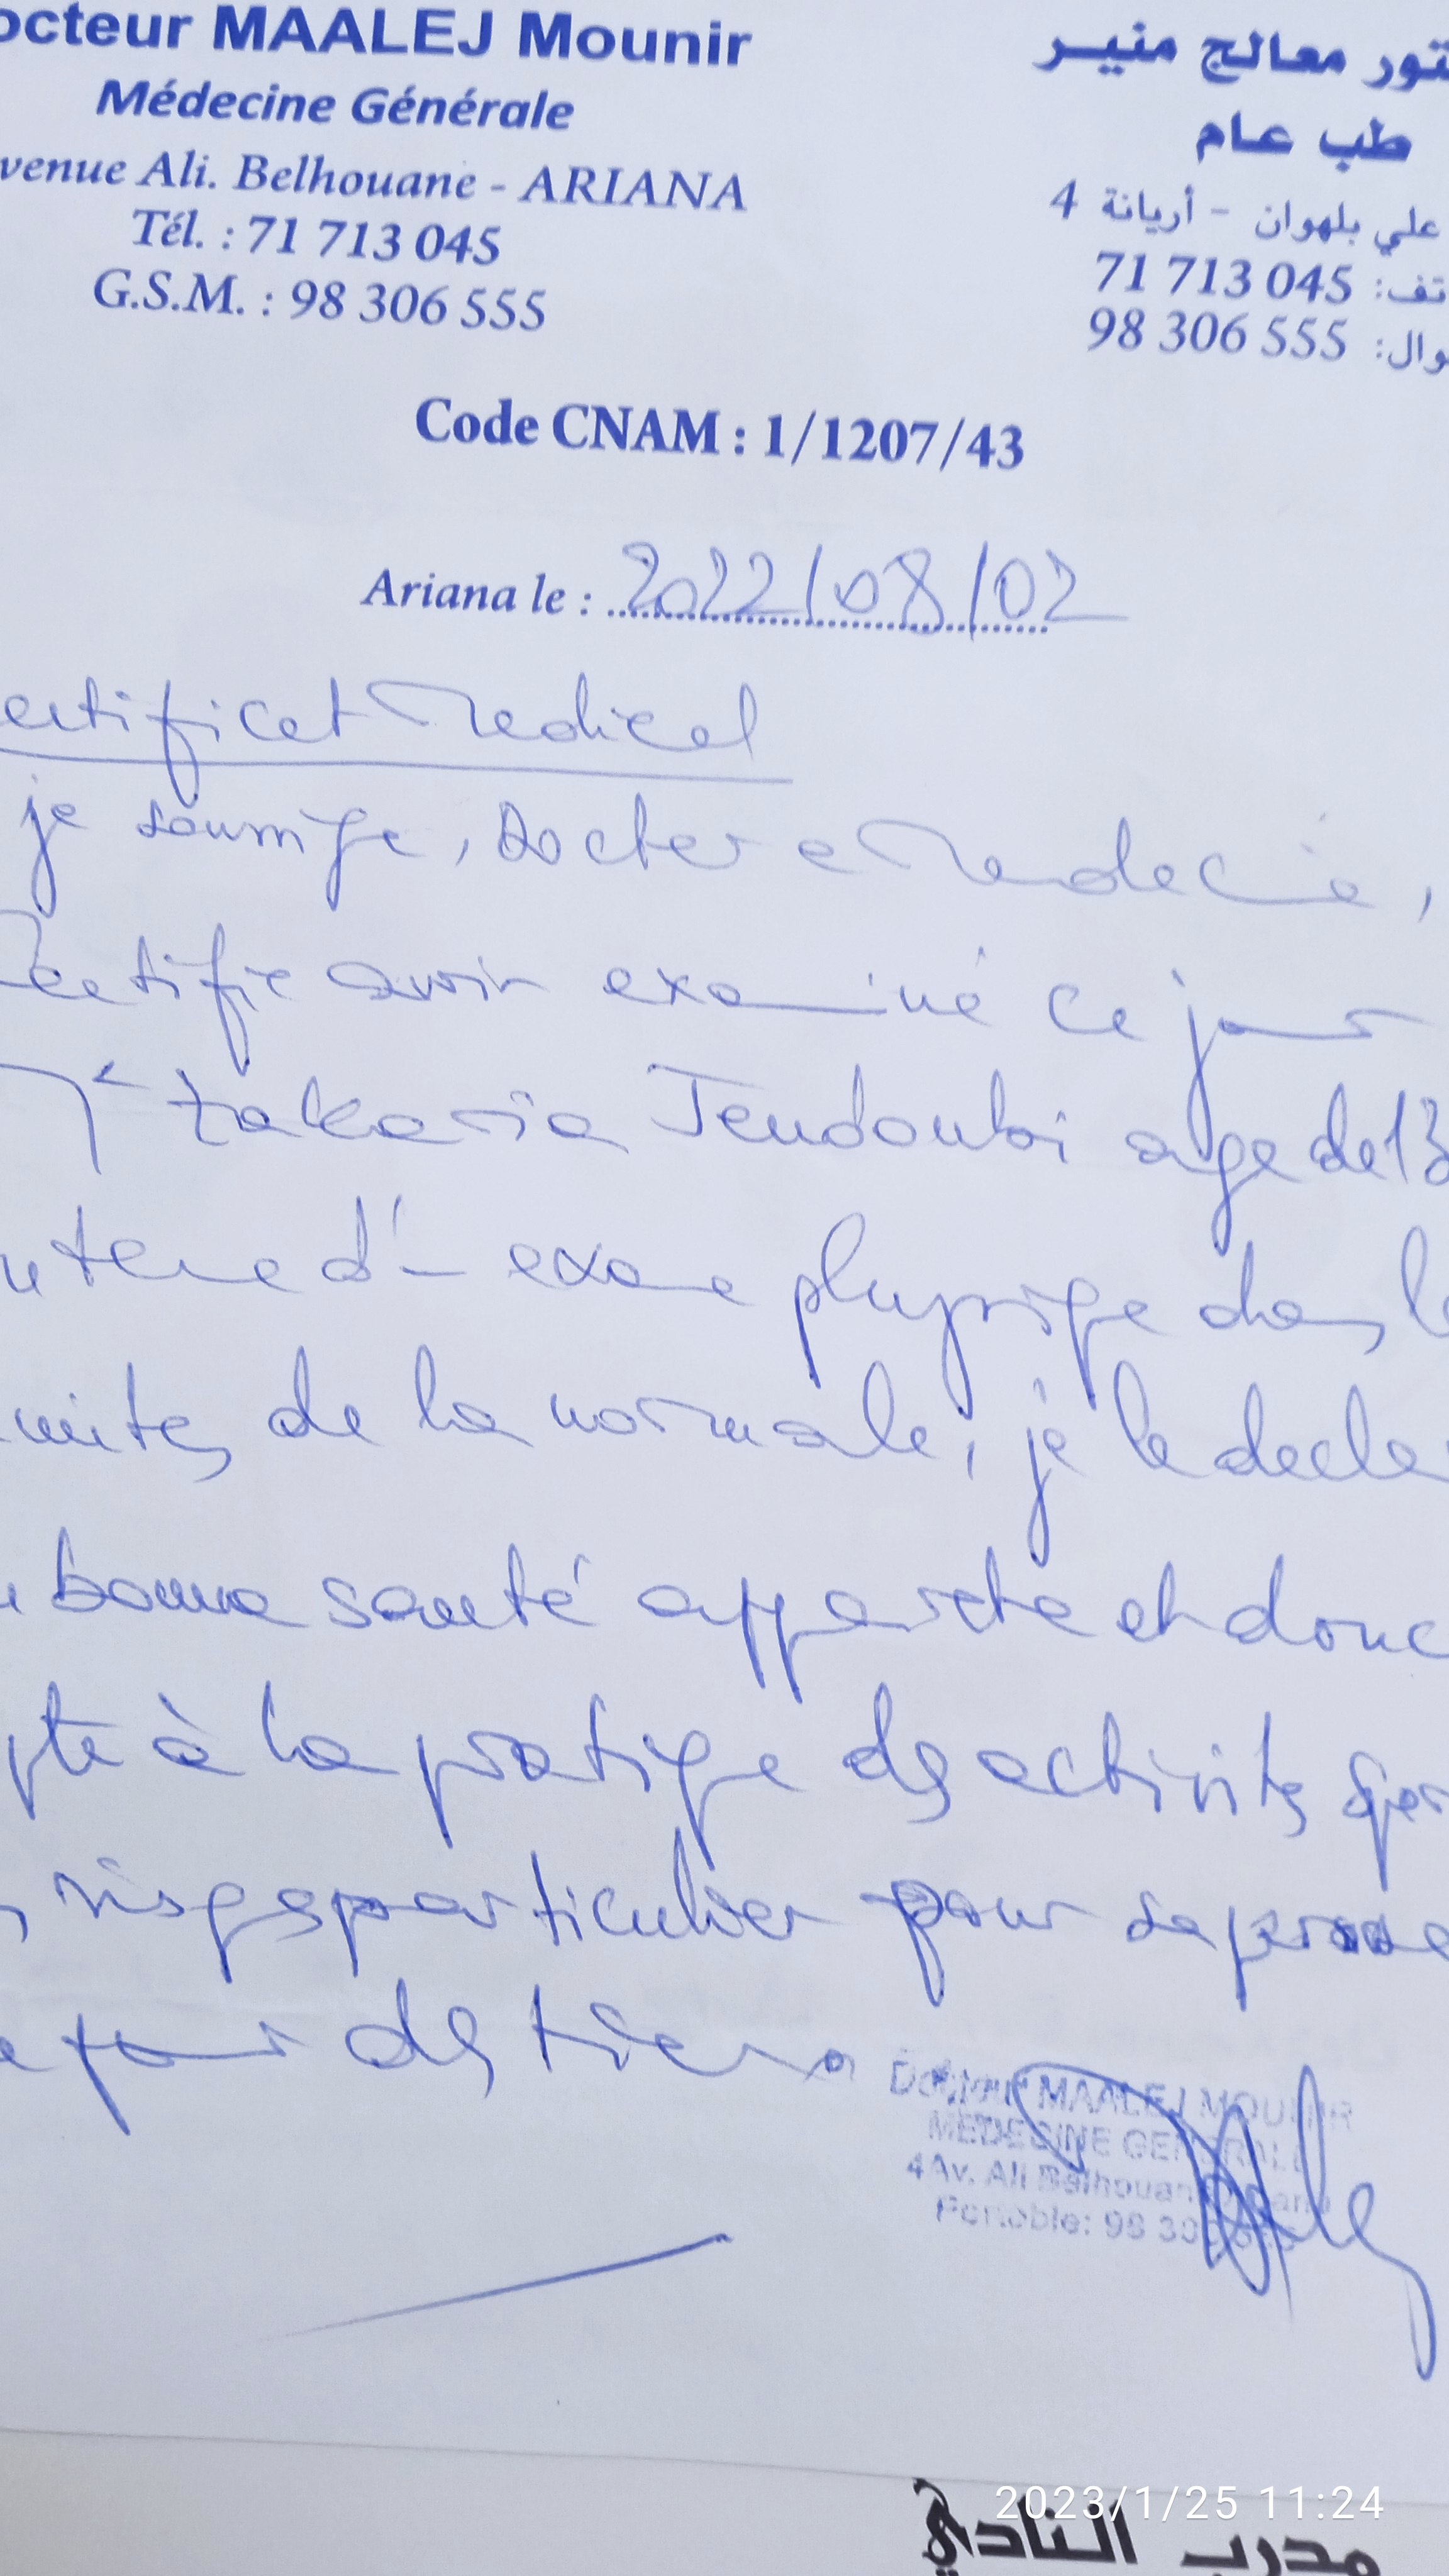 octeur MAALEJ Mounir
Médecine Générale
venue Ali. Belhouane - ARIANA
Tél. : 71 713 045
G.S.M. : 98 306 555
تور معالج منير
طب عام
4 علي بلهوان - أريانة
تف: 71 713 045
وال: 98 306 555
Code CNAM : 1/1207/43
Ariana le : 2022/08/02
ertificat Medical
je soussigné, Docteur en Medecine,
Certifie avoir examiné ce jour
Mr Zakaria Jendoubi age de 13
u terme d'un examen physique dans le
mites de la normale, je le decla
bonne santé apparente et donc
pte à la pratique des activités spor
risques particulier pour sa personne
pour des tiers
Docteur MAALEJ MOUNIR
MEDECINE GENERALE
4 Av. Ali Belhouane Ariana
Portable: 98 306 555
2023/1/25 11:24
مدرب النادي